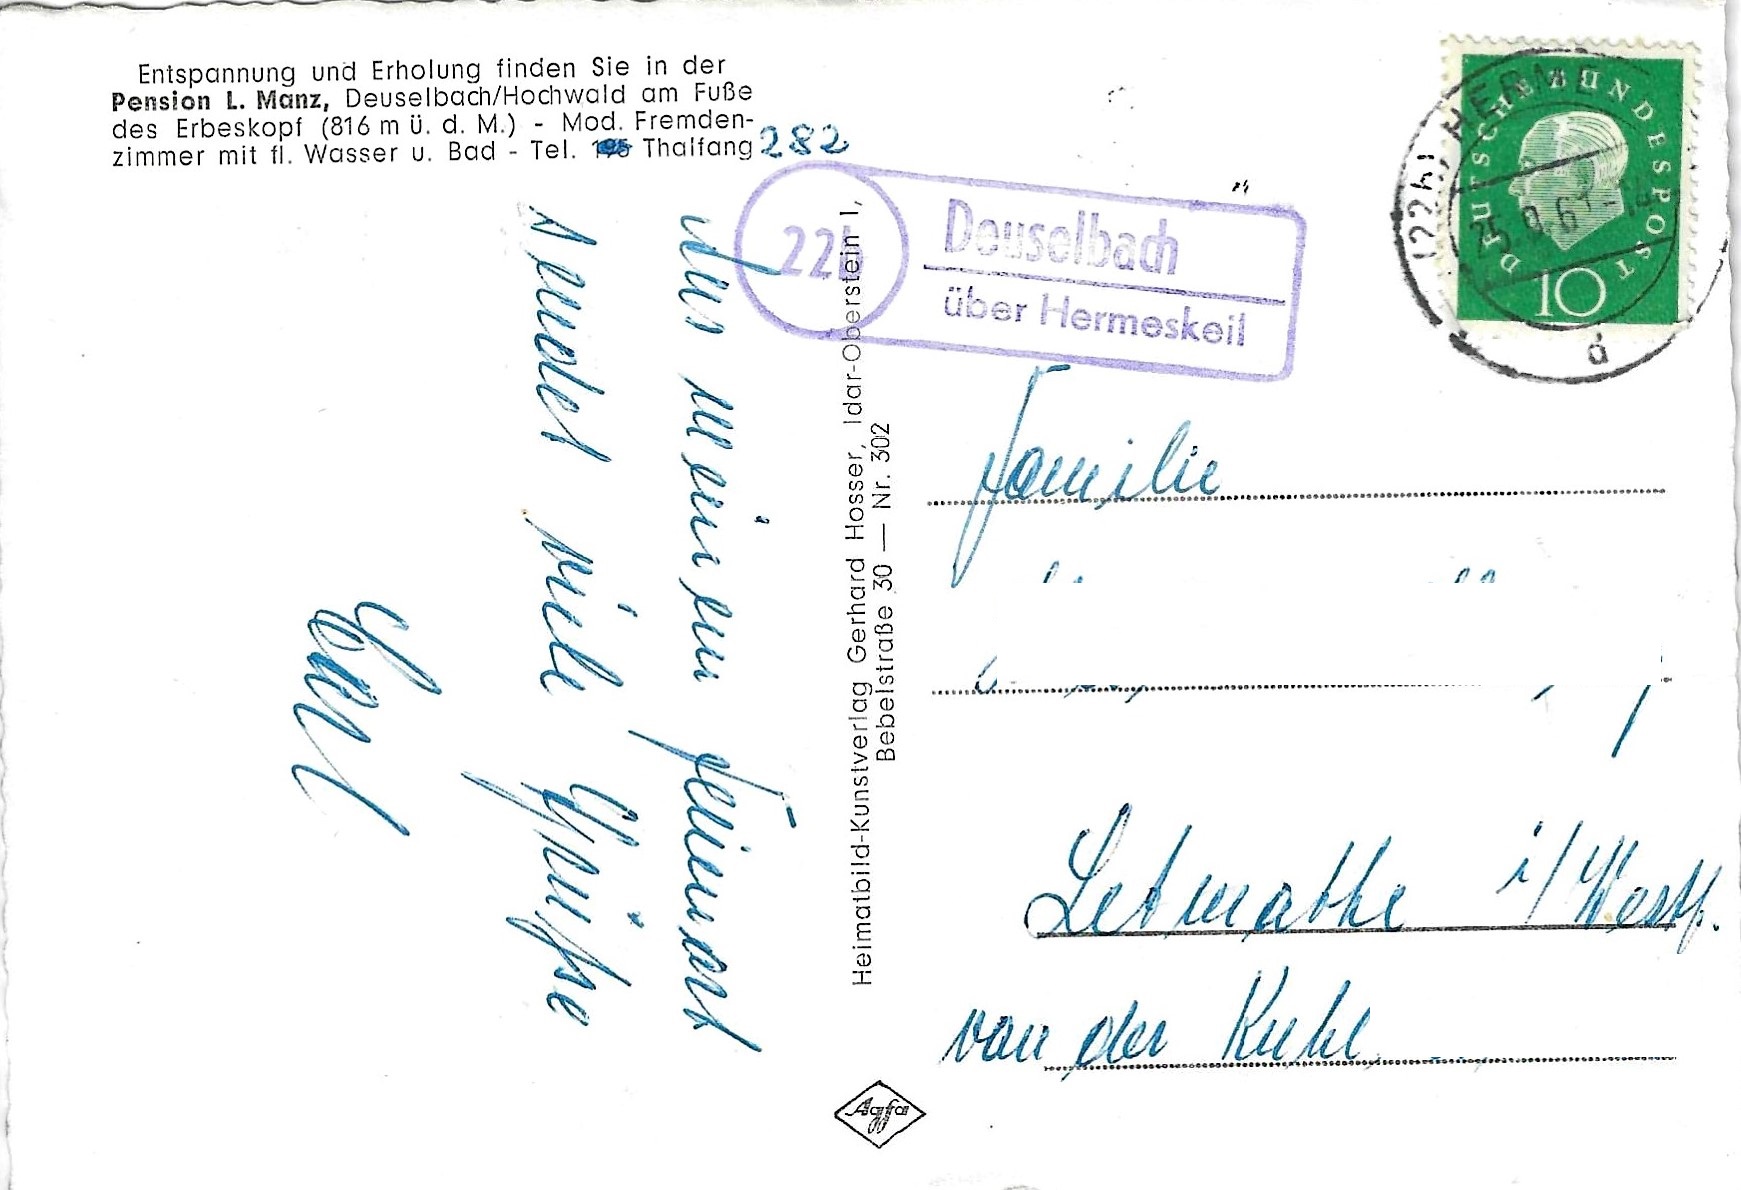 Entspannung und Erholung finden Sie in der
Pension L. Manz, Deuselbach/Hochwald am Fuße
des Erbeskopf (816 m ü. d. M.) - Mod. Fremden-
zimmer mit fl. Wasser u. Bad - Tel. Thalfang 282
Aus meinem Ferienort
sendet viele Grüße
Heimatbild-Kunstverlag Gerhard Hosser, Idar-Oberstein 1,
Bebelstraße 30 — Nr. 302
22b
Deuselbach
über Hermeskeil
DEUTSCHE BUNDESPOST
10
(22b) HERME
a
Familie
Letmathe i/Westf.
von der Kuhl
Agfa